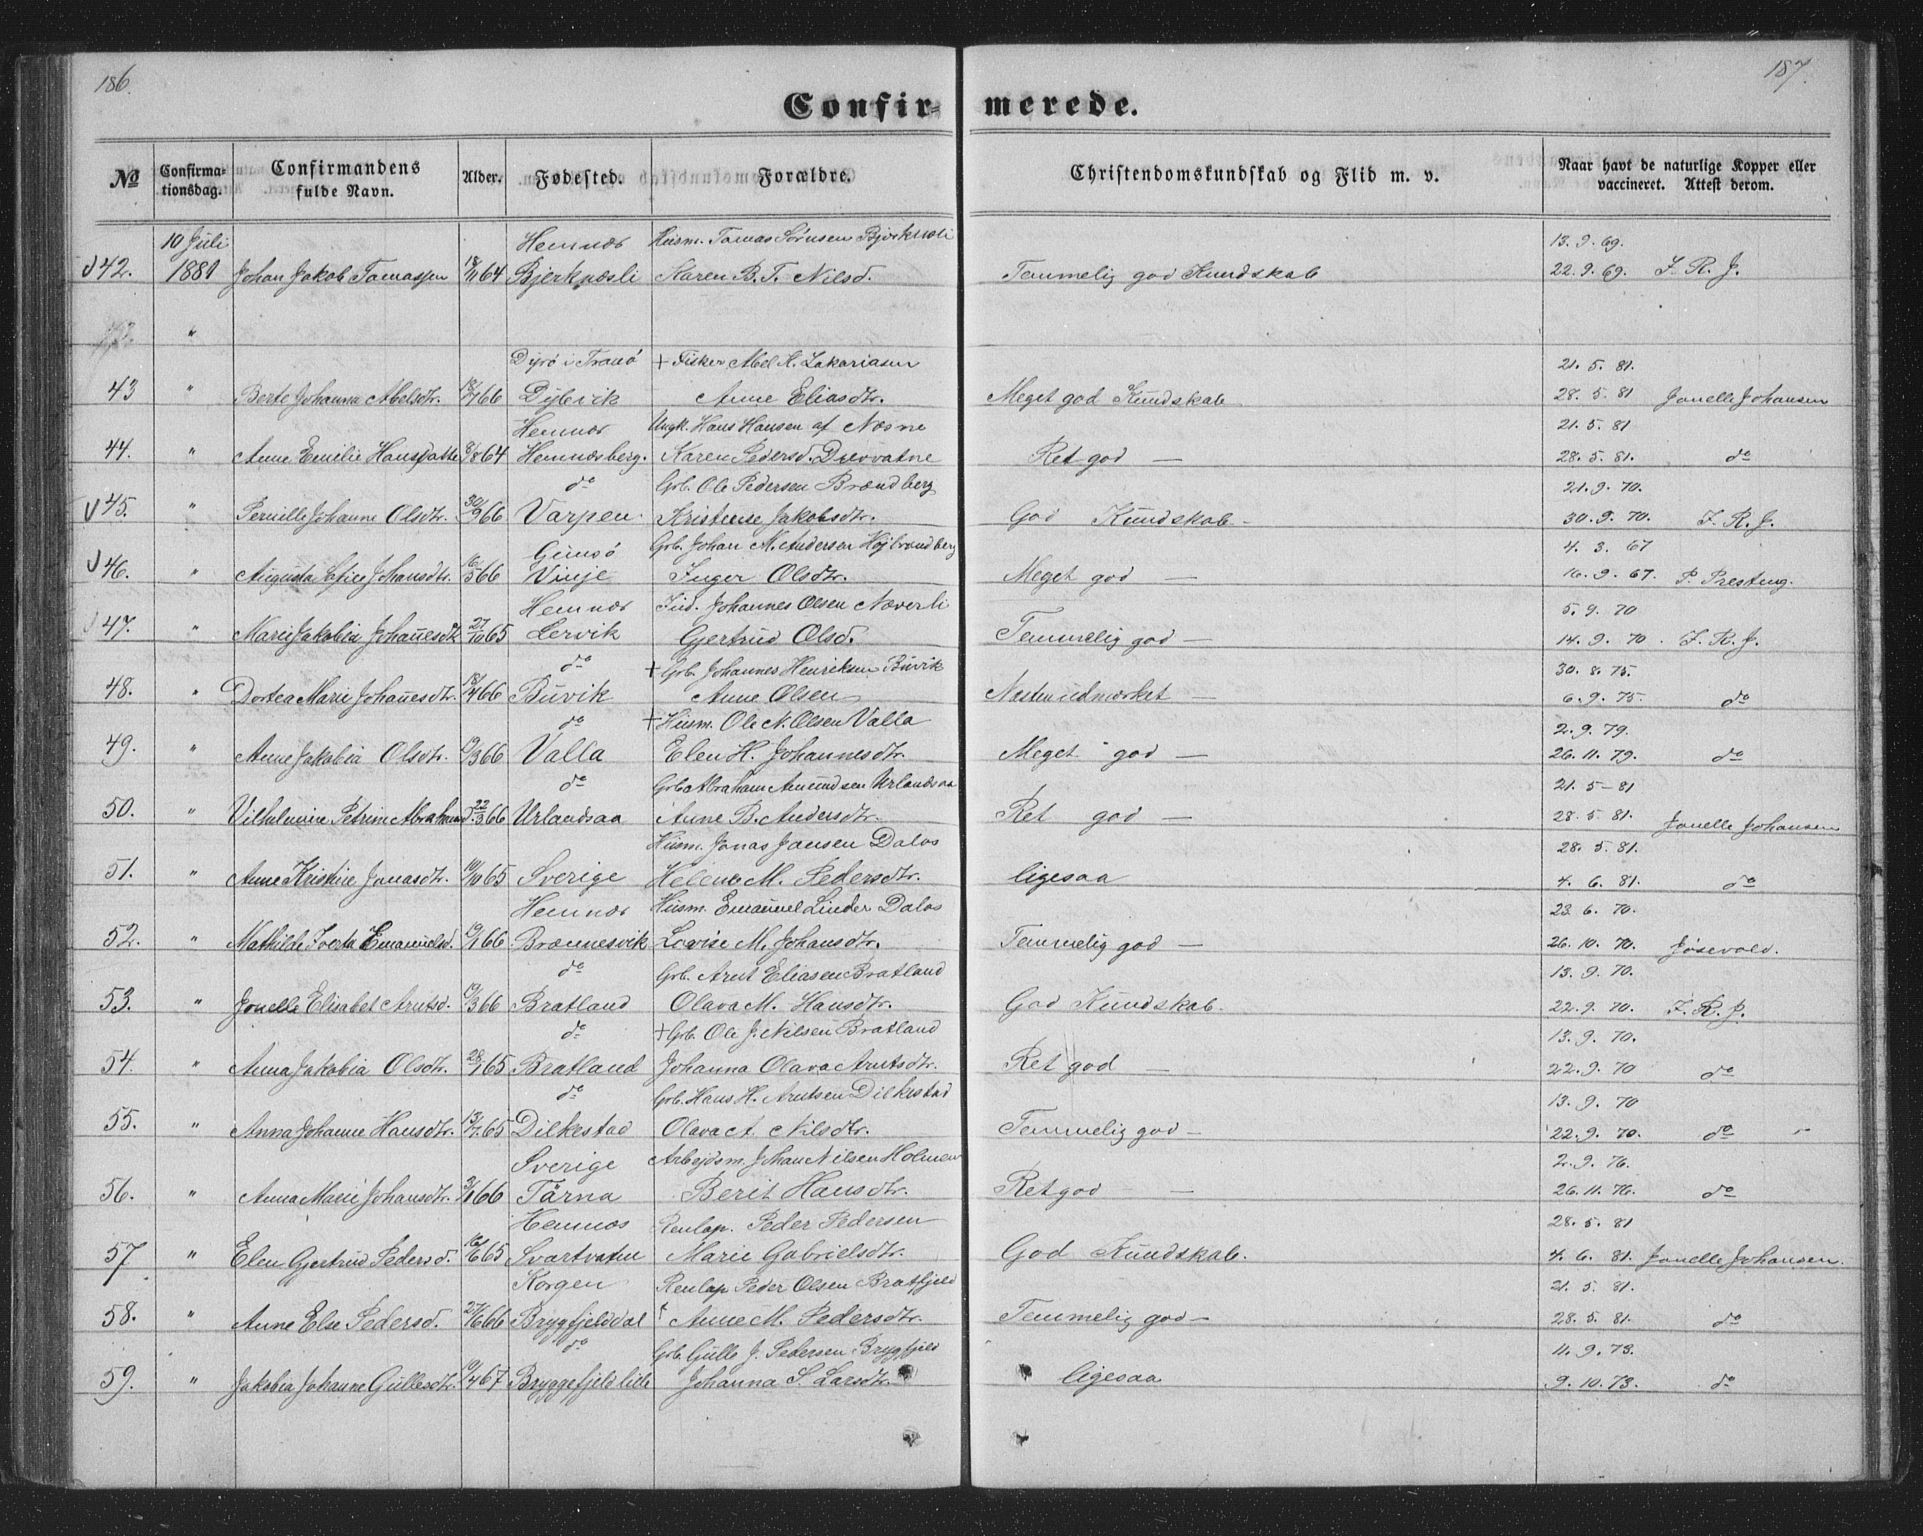 186.
187.
Confir-
merede.
No
Confirma-tionsdag.
Confirmandens fulde Navn.
Alder.
Fødested.
Forældre.
Christendomskundskab og Flid m. v.
Naar havt de naturlige Kopper eller vaccineret. Attest derom.
10 Juli Hemnæs Husm. Tomas Sørnsen Bjørknæsli 13.9.69.
42. 1881 Johan Jakob Tomassen 18/11 64 Bjerknæsli Karen B. T. Nilsd. Temmelig god Kundskab 22.9.69. F. R. J.
"
Dyrø i Tranø + Fisker Abel A. Zakariasen 21.5.81.
43 " Berte Johanna Abelsdtr. 66 Dybvik Anne Eliasdtr. Meget god Kundskab 28.5.81 Jonelle Johansen
Hemnæs Ungk. Hans Hansen af Næsne 21.5.81
44. " Anne Emilie Hansdatter 64 Hemnæsberg. Karen Pedersd. Durvatne Ret god — 28.5.81. do
do Grb. Ole Pedersen Brændberg 21.9.70.
45. " Pernille Johanne Olsdtr. 30/9 66 Varpen Kristense Jakobsdtr. God Kundskab - 30.9.70. F. R. J.
Gimsø Grb. Johan M. Andersen Højbrændberg 4.3.67
46. " Augusta Sofie Johansdtr. 16/5 66 Vinje Inger Olsdtr. Meget god — 16.9.67. P. Presteng.
Hemnæs Ind. Johannes Olsen Næverli 5.9.70
47. " Marie Jakobia Johannesdtr. 27/10 65 Lervik Gjertrud Olsd. Temmelig god — 14.9.70. F. R. J.
do + Grb. Johannes Henriksen Buvik 30.8.75.
48. " Dortea Marie Johannesdtr. 18/4 66 Buvik Anne Olsen Næsten udmærket — 6.9.75. do
do + Husm. Ole N. Olsen Valla 2.9.79.
49. " Anne Jakobia Olsdtr. 66 Valla Elen H. Johannesdtr. Meget god — 26.11.79. do
do Grb. Abraham Amundsen Urlandsaa 21.5-81
50. " Vilhelmine Petrine Abrahamsd. 22/3 66 Urlandsaa Anne B. Andersdtr. Ret god — 28.5.81. Jonelle Johansen
Husm. Jonas Jonsen Dalos 28.5.81.
51. " Anne Kristine Jonasdtr. 65 Sverige Helene M. Pedersdtr. ligesaa 4.6.81. do
Hemnæs Husm. Emanuel Linder Dalos 23.6.70.
52. " Mathilde Iverta Emanuelsd. 66 Brænnesvik Lovise M. Johansdtr. Temmelig god — 26.10.70. Jøsevold.
do Grb. Arnt Eliasen Bratland 13.9.70.
53. " Jonelle Elisabet Arntsd. 66 Bratland Olava M. Hansdtr. God Kundskab. 22.9.70. F. R. J.
do + Grb. Ole J. Nilsen Bratland 13.9.70.
54. " Anna Jakobia Olsdtr. 65 Bratland Johanna Olava Arntsdtr. Ret god — 22.9.70 do
do Grb. Hans H. Arntsen Dilkestad 13.9.70
55. " Anna Johanne Hansdtr. 13/7 65 Dilkestad Olava A. Nilsdtr. Temmelig god — 22.9.70. do
Sverige Arbejdsm. Johan Nilsen Holmen 2.9.76.
56. " Anna Marie Johansdtr. 66 Tärna Berit Hansdtr. Ret god — 26.11.76. do
Hemnæs Renlap. Peder Pedersen 28.5.81
57 " Elen Gjertrud Pedersd. 65 Svartvatn Marie Gabrielsdtr. God Kundskab. 4.6.81. Jonelle Johansen.
Korgen Renlap Peder Olsen Bratfjeld 21.5.81.
58. " Anne Else Pedersd. 27/6 66 Brygfjelddal + Anne M. Pedersdtr. Temmelig god — 28.5.81. do
do Grb. Gulle J. Pedersen Brygfjeld 11.9.73.
59. " Jakobia Johanne Gullesdtr. 67 Bryggefjeld lille Johanna S. Larsdtr. ligesaa 9.10.73. do